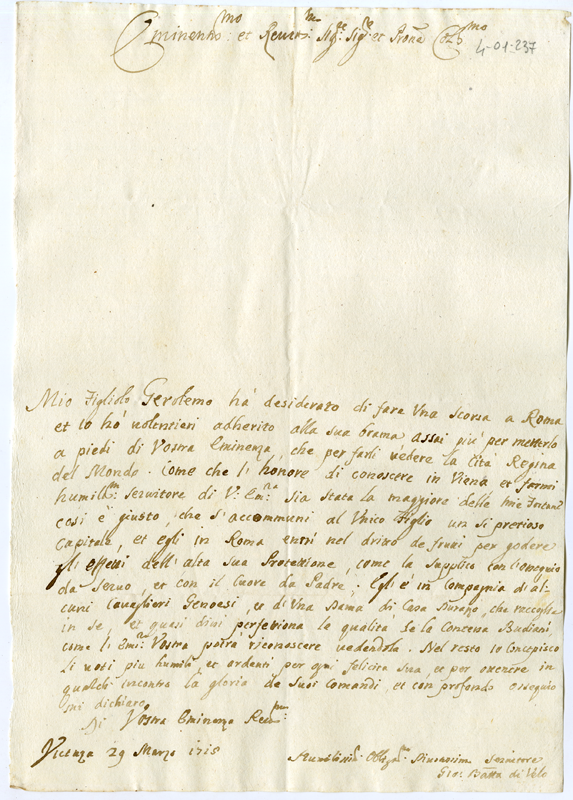 Eminentmo: et Reverm: Sigre: Sigre et Prone Colmo
4-01-237
Mio Figliolo Gerolemo ha' desiderato di fare Una Scorsa a Roma
et Io ho' volentieri adherito alla sua brama assai piu' per metterlo
a piedi di Vostra Eminenza, che per farli vedere la Cità Regina
del Mondo. Come che l'honore di conoscere in Viena et farmi
humilm: Servitore di V: Emna sia stata la maggiore delle mie Fortune
cosi è giusto, che s'accommuni al Unico Figlio un si pretioso
Capitale, et egli in Roma entri nel drito de per godere
gli effetti dell'alta sua Protettione, come la Supplico con l'ossequio
da Servo, et con il Cuore da Padre. Egli è in Compagnia di al-
cuni Cavaglieri Genoesi, et d'Una Dama di Casa Durazo, che raccoglie
in se, et quasi dissi perfetiona le qualità de la Contessa
come l'Emza Vostra potrà riconoscere vedendola. Nel resto Io Concepisco
li voti piu humili, et ardenti per ogni felicità sua, et per ottenere in
qualche incontro la gloria de Suoi Comandi, et con profondo ossequio
mi dichiaro
Di Vostra Eminenza Revma:
Vicenza 29 Marzo 1715
Humilissi: Obligm: Servitore
Gio: Batta di Velo